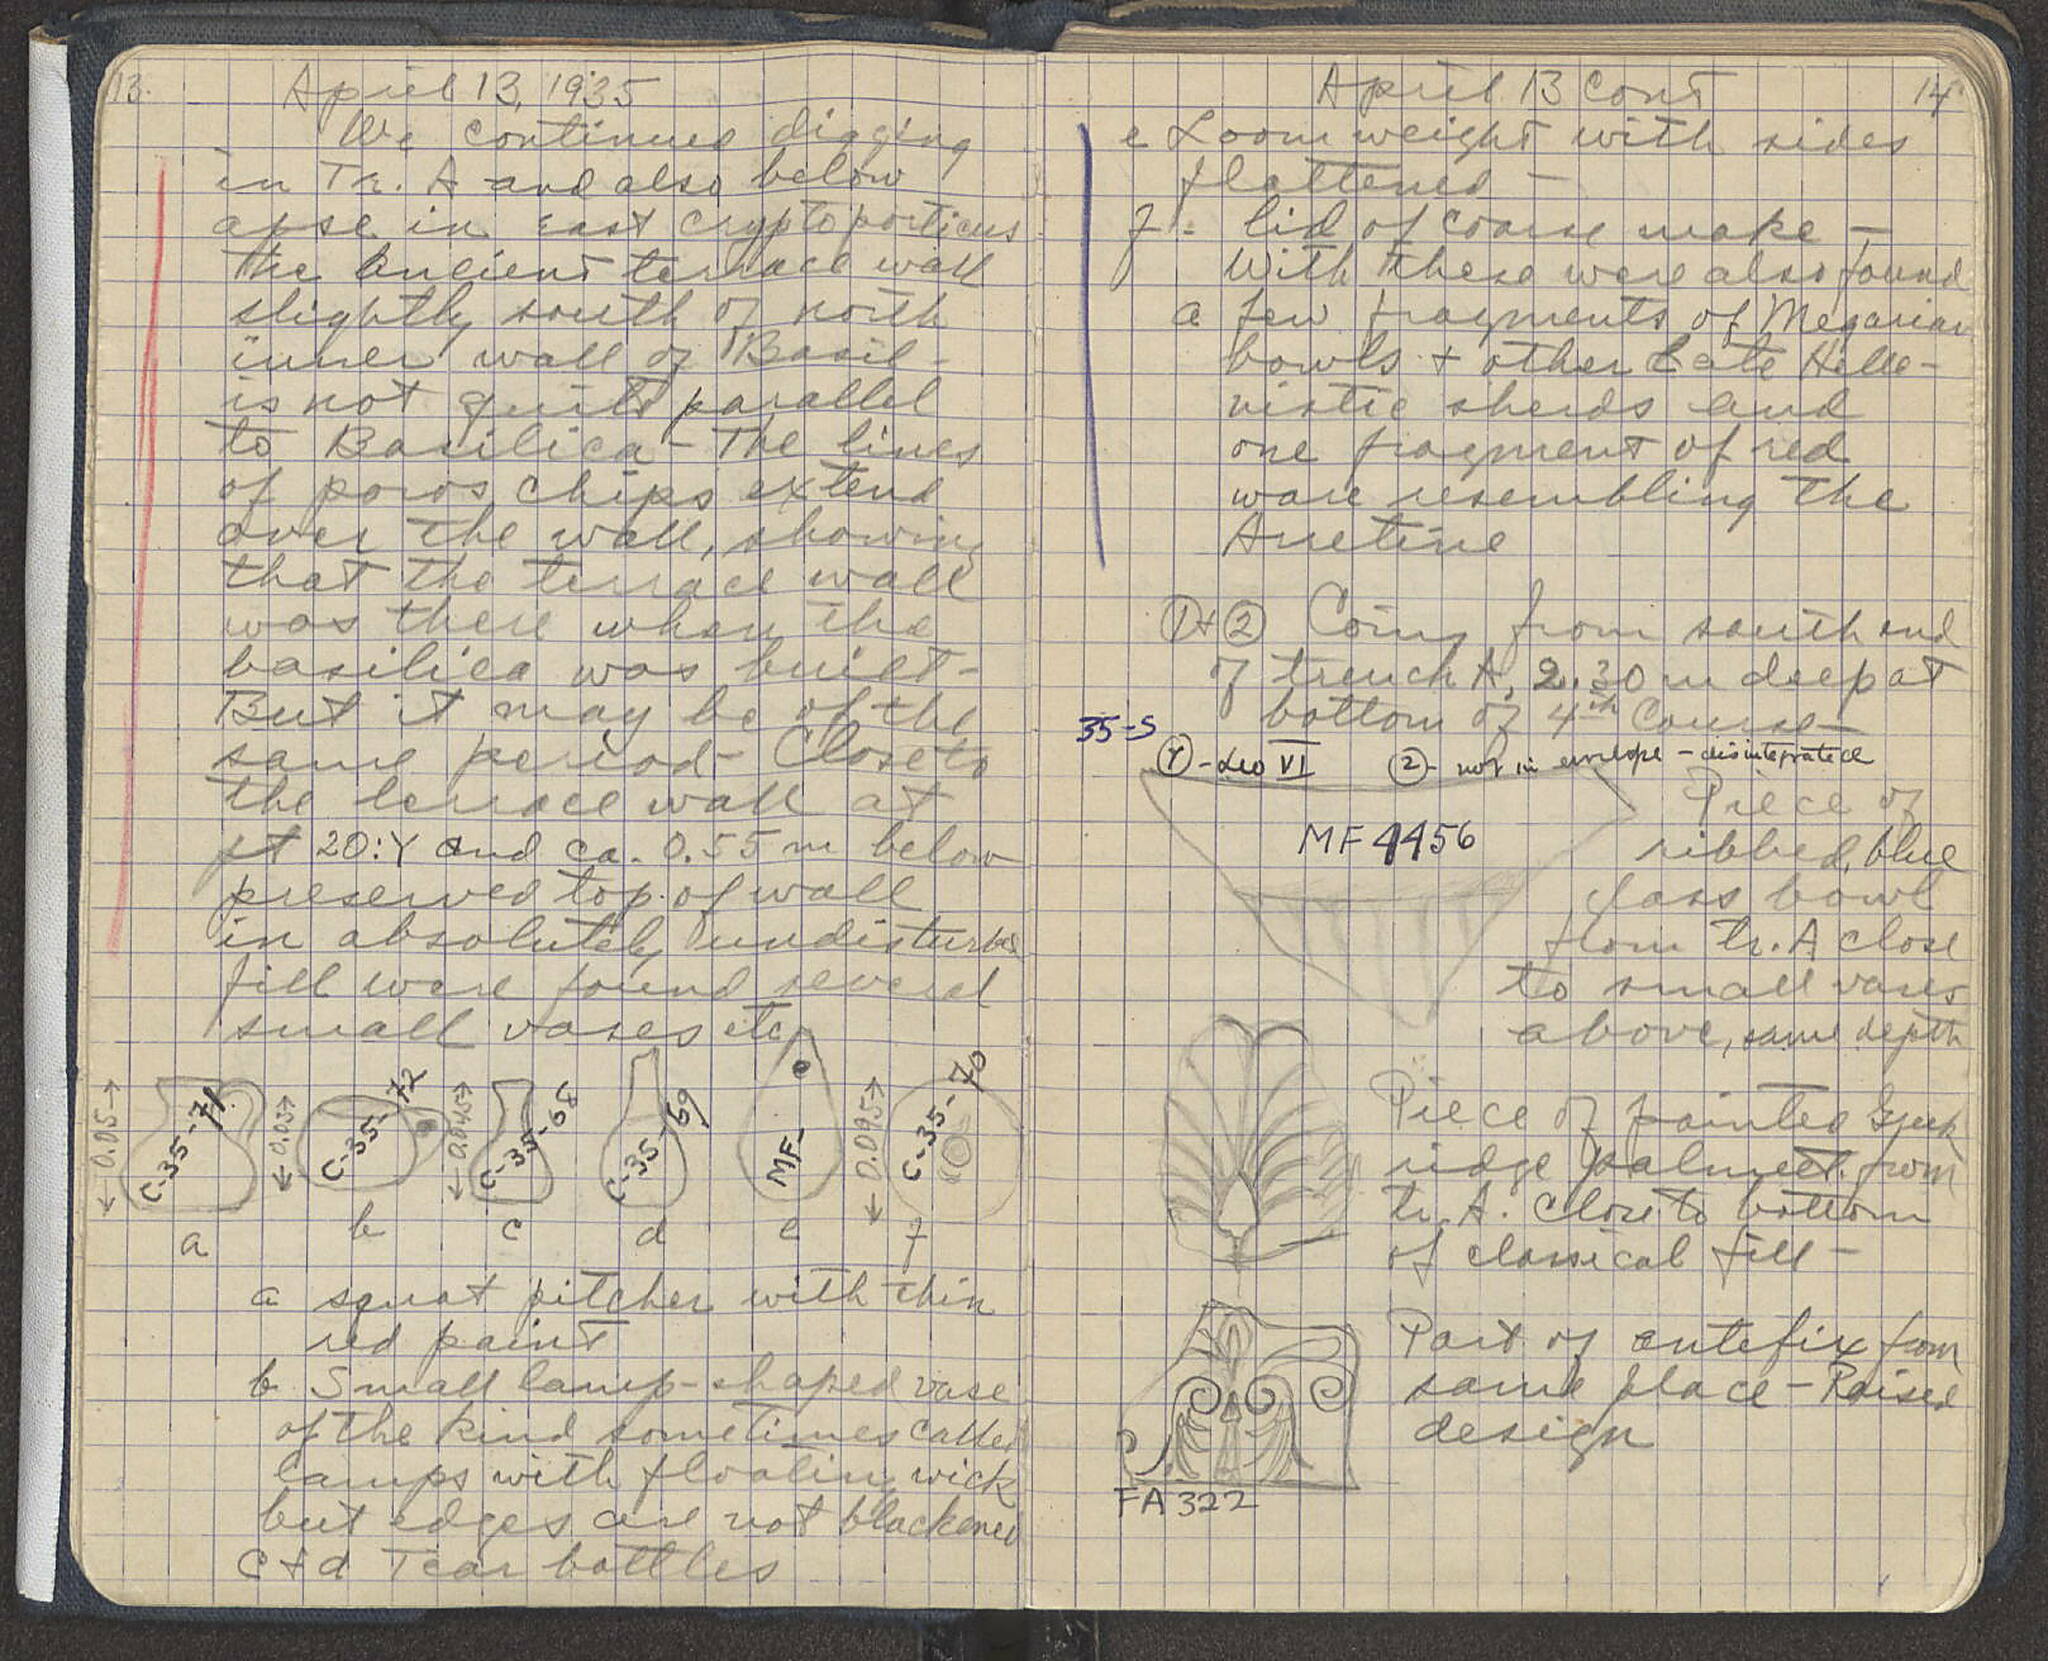 13.
April 13, 1935
We continued digging
in Tr. A and also below
apse in East Cryptoporticus
The ancient terrace wall
slightly south of north
inner wall of Basil-
is not quite parallel
to Basilica - The lines
of poros chips extend
over the wall, showing
that the terrace wall
was there when the
basilica was built -
But it may be of the
same period - Close to
the terrace wall at
pt 20:Y and ca. 0.55 m below
preserved top of wall
in absolutely undisturbed
fill were found several
small vases etc
← 0.05 →
C-35-71
← 0.03 →
C-35-72
← 0.045 →
C-35-68
C-35-69
MF-
← 0.095 →
C-35-70
a b c d e f
a squat pitcher with thin
red paint
b Small lamp-shaped vase
of the kind sometimes called
lamps with floating wick
but edges are not blackened
c + d Tear bottles
April 13 Cont
14
e Loomweight with sides
flattened -
f - lid of coarse make -
With these were also found
a few fragments of Megarian
bowls + other Late Helle-
nistic sherds and
one fragment of red
ware resembling the
Arretine
① + ② Coins from south end
of trench A, 2.30 m deep at
bottom of 4th Course -
35-S
① - Leo VI ② - not in envelope - disintegrated
MF 4456
Piece of
ribbed, blue
glass bowl
from tr. A close
to small vases
above, same depth
Piece of painted Greek
ridge palmett from
tr. A. Close to bottom
of classical fill -
Part of antefix from
same place - Raised
design
FA 322